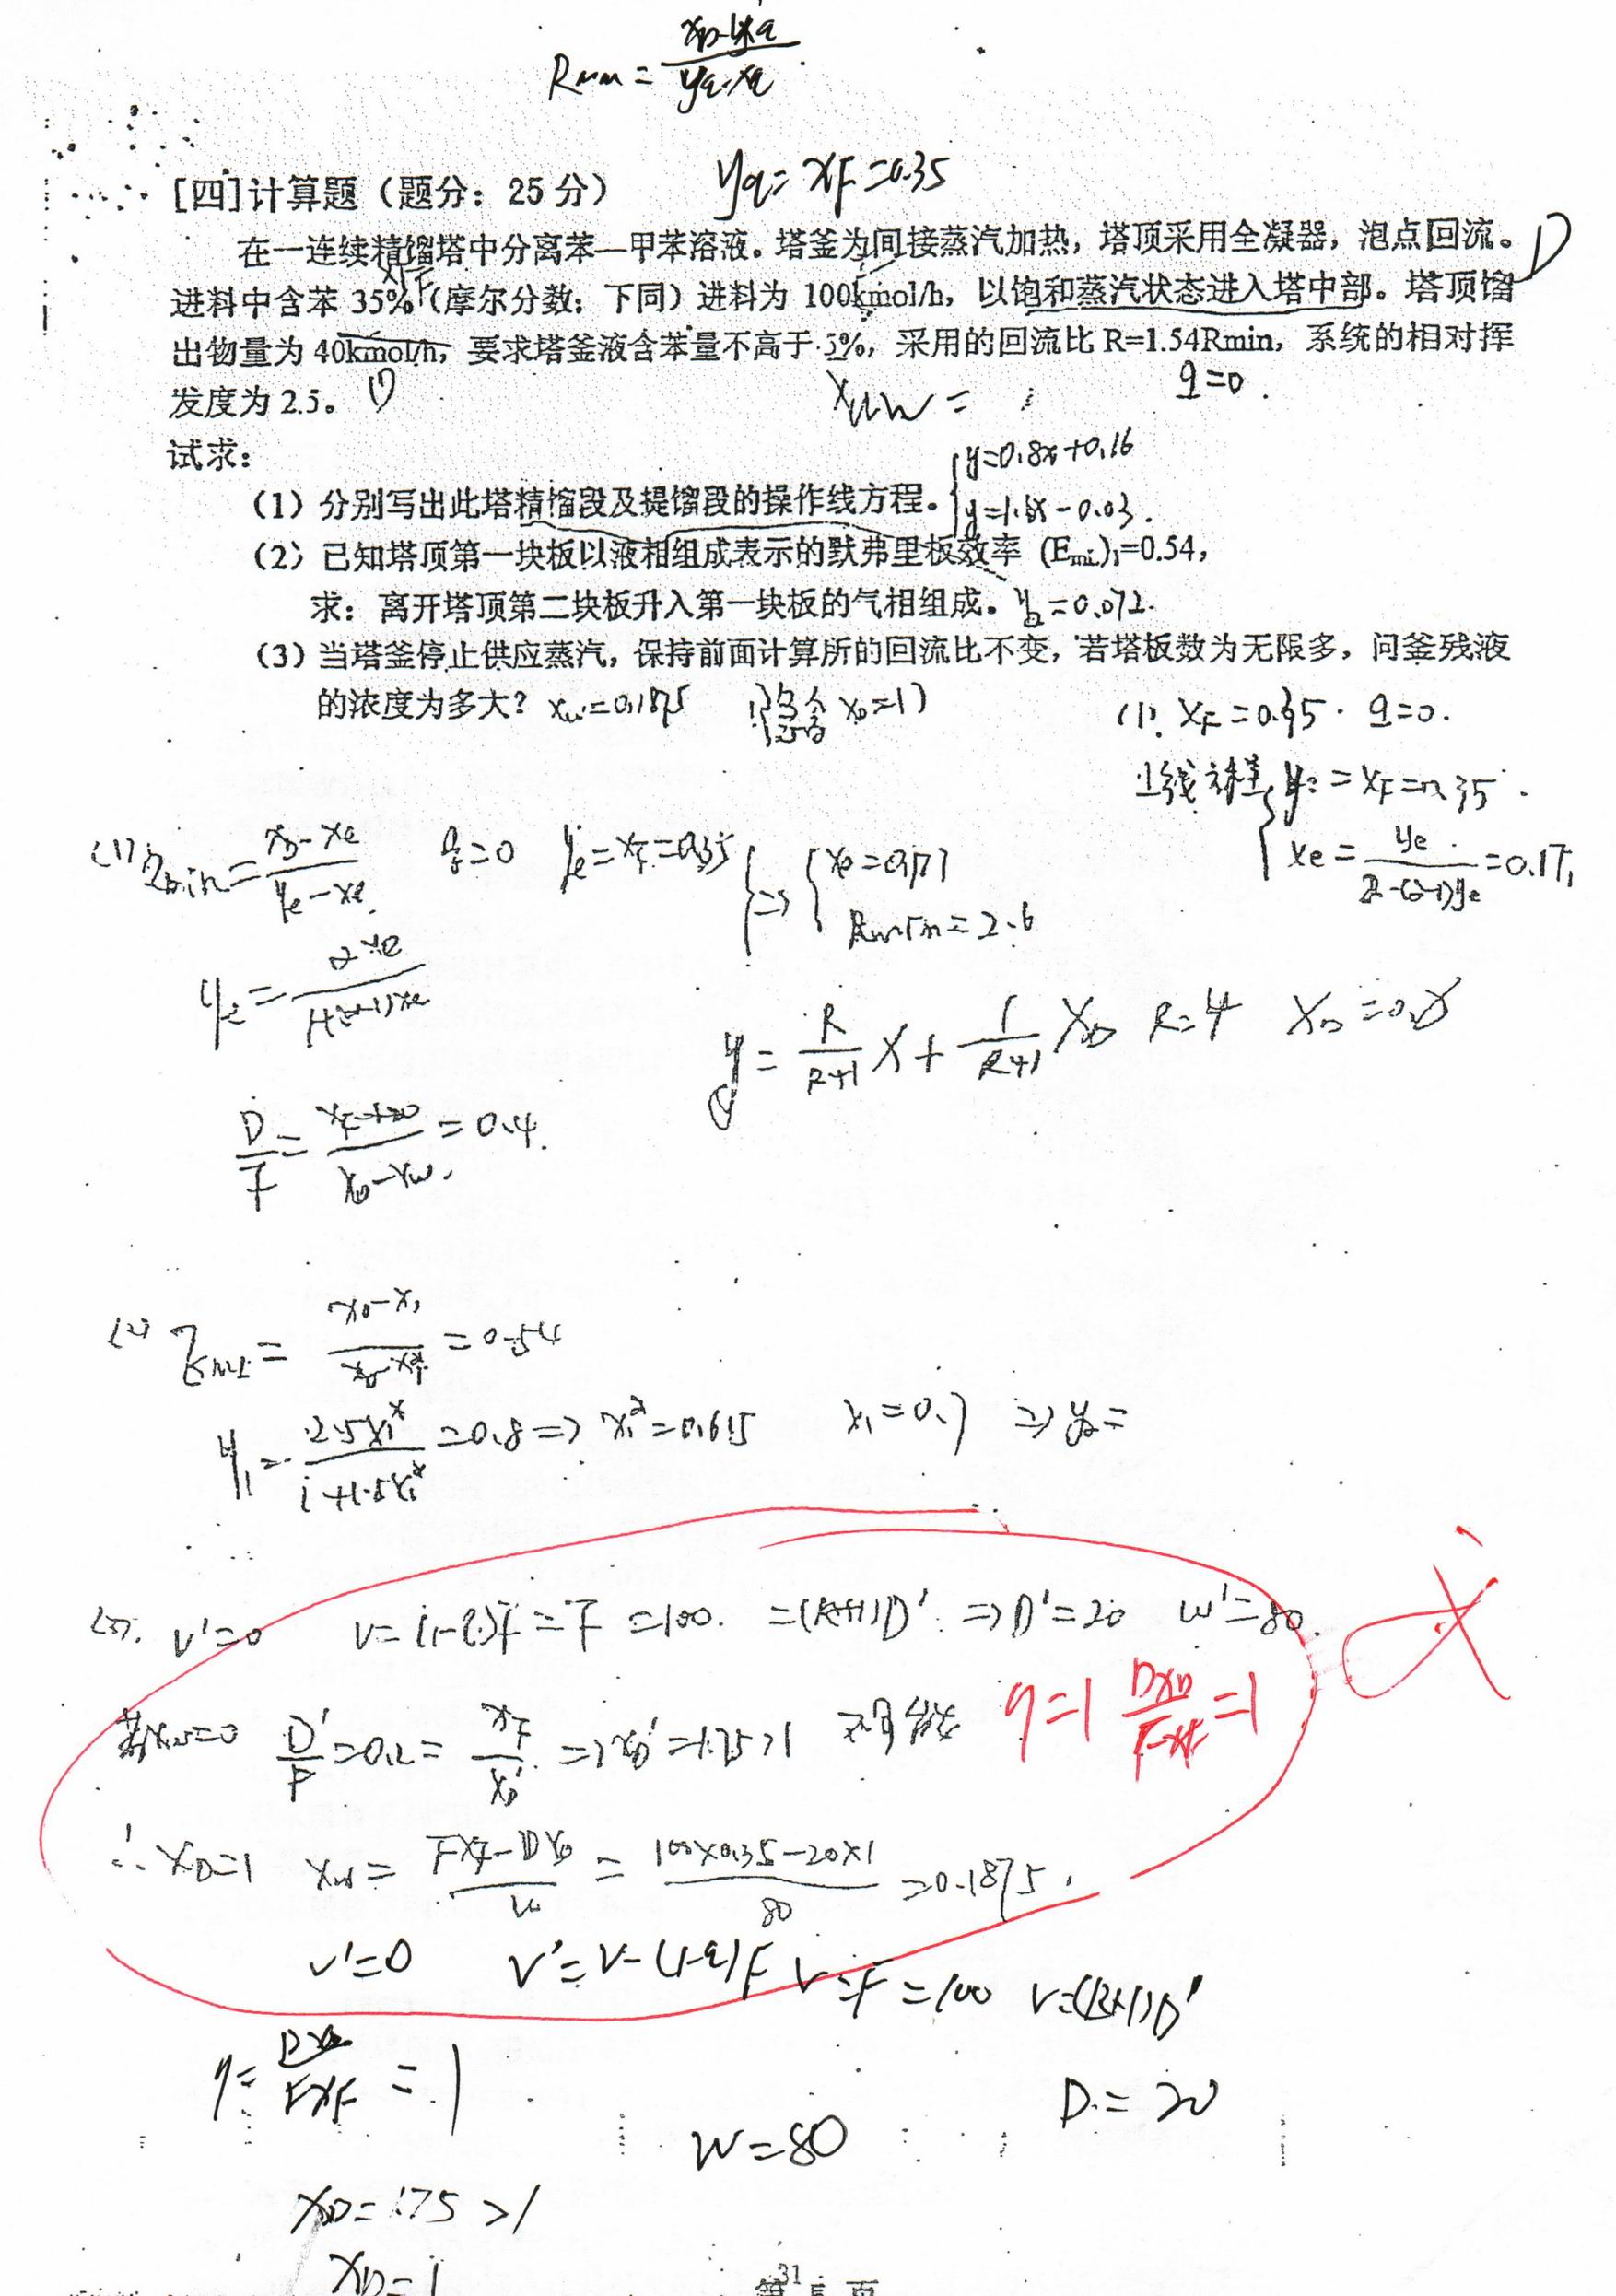 Rmin = (xD-yq)/(yq-xq)
yq = xF = 0.35
[四]计算题（题分：25 分）
在一连续精馏塔中分离苯—甲苯溶液。塔釜为间接蒸汽加热，塔顶采用全凝器，泡点回流。
进料中含苯 35%（摩尔分数；下同）进料为 100kmol/h，以饱和蒸汽状态进入塔中部。塔顶馏
出物量为 40kmol/h，要求塔釜液含苯量不高于 5%，采用的回流比 R=1.54Rmin，系统的相对挥
发度为 2.5。
q=0.
试求：
y=0.8x+0.16
（1）分别写出此塔精馏段及提馏段的操作线方程。
y=1.6x-0.03.
（2）已知塔顶第一块板以液相组成表示的默弗里板效率 (EmL)1=0.54，
求：离开塔顶第二块板升入第一块板的气相组成。y2=0.072.
（3）当塔釜停止供应蒸汽，保持前面计算所的回流比不变，若塔板数为无限多，问釜残液
的浓度为多大？ xw=0.1875 xD=1)
(1). xF=0.35. q=0.
q线方程 ye=xF=0.35.
xe = ye/(α-(α-1)ye) = 0.177
(1) Rmin = (xD-xe)/(ye-xe) q=0 ye=xF=0.35 => xe=0.177
Rmin=2.6
ye = αxe/(1+(α-1)xe)
y = R/(R+1) x + 1/(R+1) xD R=4 xD=0.8
D/F = (xF-xw)/(xD-xw) = 0.4.
(2) EmL = (x0-x1)/(x0-x1*) = 0.54
y1 = 2.5x1*/(1+1.5x1*) = 0.8 => x1*=0.615 x1=0.7 => y2=
(3). V'=0 V=(1-q)F=F=100. =(R+1)D' => D'=20 W'=80.
若xw=0 D'/F=0.2=xF/xD' => xD'=1.75>1 不可能 η=1 DxD/FxF=1
∴ xD=1 xw = (FxF-DxD)/W = (100×0.35-20×1)/80 = 0.1875.
V'=0 V'=V-(1-q)F V=F=100 V=(R+1)D'
η = DxD/FxF = 1
D=20
W=80
xD=1.75>1
xD=1
31